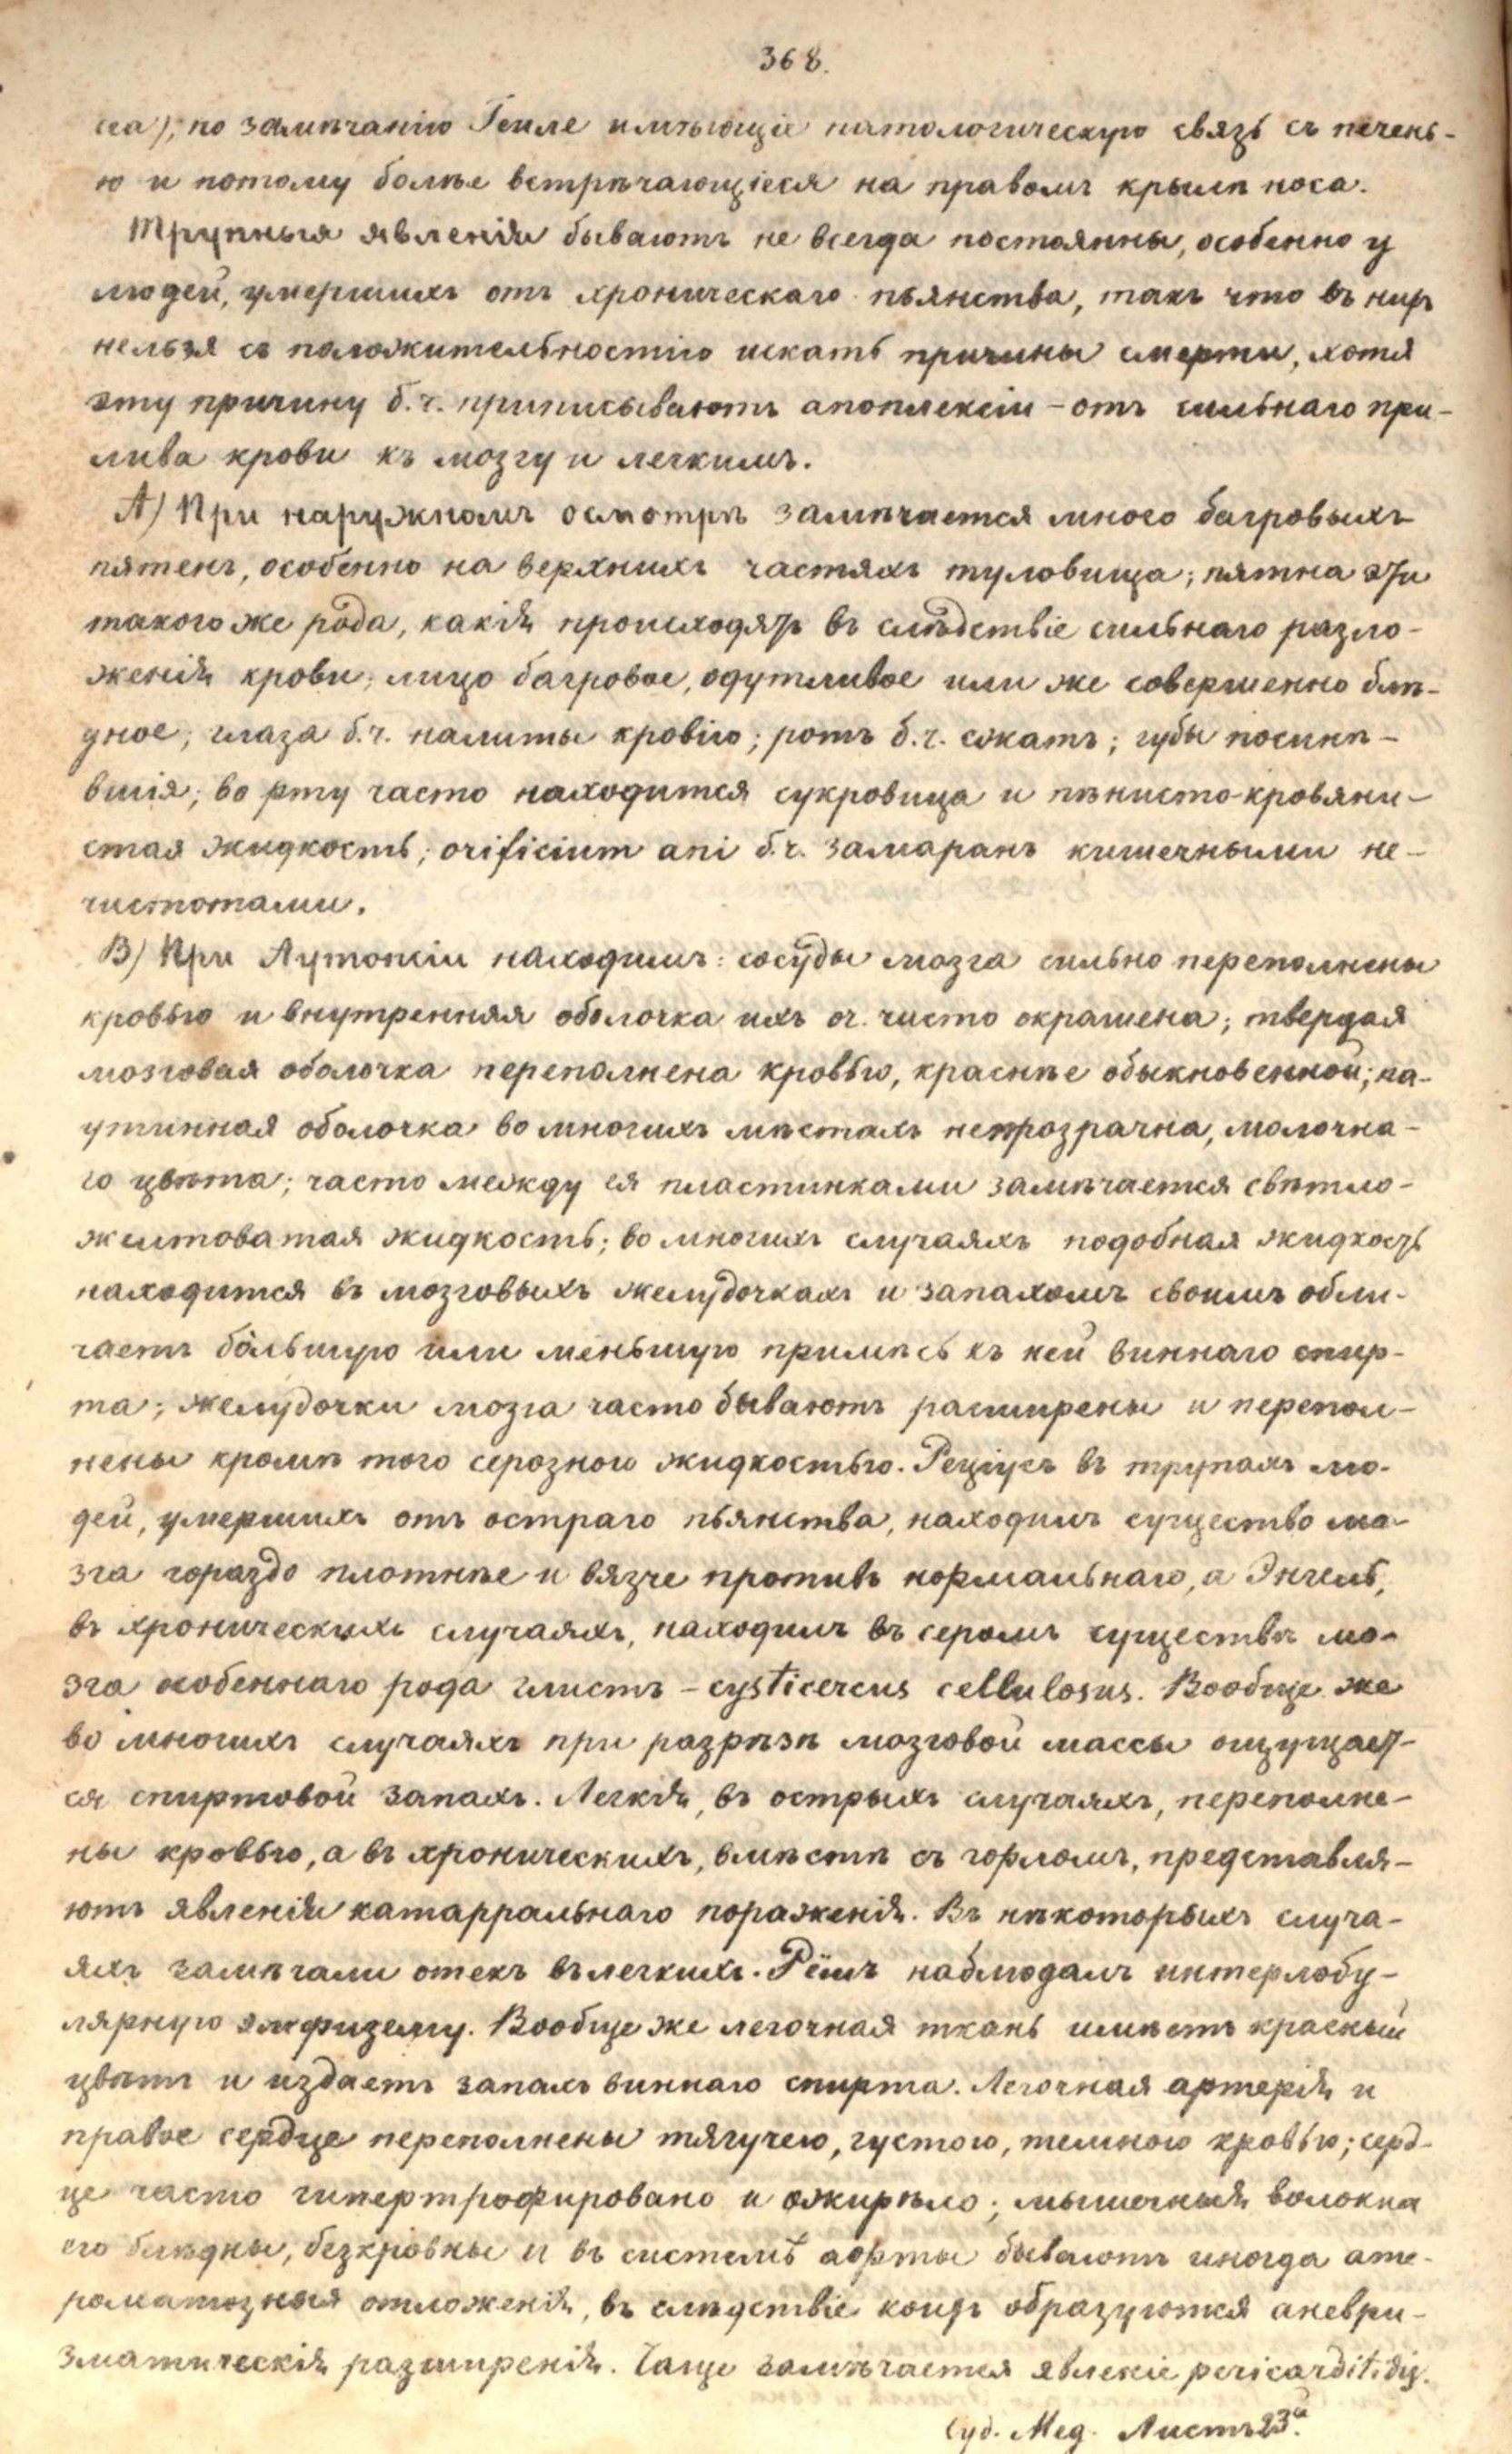 368.
са), по замѣчанію Генле имѣющіе патологическую связь съ печень-
ю и потому болѣе встрѣчающіеся на правомъ крылѣ носа.
Трупныя явленія бываютъ не всегда постоянны, особенно у
людей, умершихъ отъ хроническаго пьянства, такъ что въ нихъ
нельзя съ положительностію искать причины смерти, хотя
эту причину б.ч. приписываютъ апоплексіи – отъ сильнаго при-
лива крови къ мозгу и легкимъ.
А) При наружномъ осмотрѣ замѣчается много багровыхъ
пятенъ, особенно на верхнихъ частяхъ туловища; пятна эти
такого же рода, какія происходятъ въ слѣдствіе сильнаго разло-
женія крови; лицо багровое, одутливое или же совершенно блѣ-
дное; глаза б.ч. налиты кровію; ротъ б.ч. сжатъ; губы посинѣ-
вшія; во рту часто находится сукровица и пѣнисто-кровяни-
стая жидкость; orificium ani б.ч. замаранъ кишечными не-
чистотами.
В) При Аутопсіи находимъ: сосуды мозга сильно переполнены
кровью и внутренняя оболочка ихъ оч. чисто окрашена; твердая
мозговая оболочка переполнена кровью, краснѣе обыкновенной; па-
утинная оболочка во многихъ мѣстахъ непрозрачна, молочна-
го цвѣта; часто между ея пластинками замѣчается свѣтло-
желтоватая жидкость; во многихъ случаяхъ подобная жидкость
находится въ мозговыхъ желудочкахъ и запахомъ своимъ обли-
чаетъ бо́льшую или меньшую примѣсь къ ней виннаго спир-
та; желудочки мозга часто бываютъ расширены и перепол-
нены кромѣ того серозною жидкостью. Реціусъ въ трупахъ лю-
дей, умершихъ отъ остраго пьянства, находилъ существо мо-
зга гораздо плотнѣе и вязче противъ нормальнаго, а Энгель,
въ хроническихъ случаяхъ, находилъ въ серомъ существѣ мо-
зга особеннаго рода глистъ – cysticercus cellulosus. Вообще же
во многихъ случаяхъ при разрѣзѣ мозговой массы ощущает-
ся спиртовой запахъ. Легкія, въ острыхъ случаяхъ, переполне-
ны кровью, а въ хроническихъ, вмѣстѣ съ горломъ, представля-
ютъ явленія катарральнаго пораженія. Въ нѣкоторыхъ случа-
яхъ замѣчали отекъ въ легкихъ. Рёшъ наблюдалъ интерлобу-
лярную эмфизему. Вообще же легочная ткань имѣетъ красный
цвѣтъ и издаетъ запахъ виннаго спирта. Легочная артерія и
правое сердце переполнены тягучею, густою, темною кровью; серд-
це часто гипертрофировано и ожирѣло; мышечныя волокна
его блѣдны, безкровны и въ системѣ аорты бываютъ иногда ате-
роматозныя отложенія, въ слѣдствіе коихъ образуются аневри-
зматическія расширенія. Чаще замѣчается явленіе pericarditidis.
Суд. Мед. Листъ 23й.